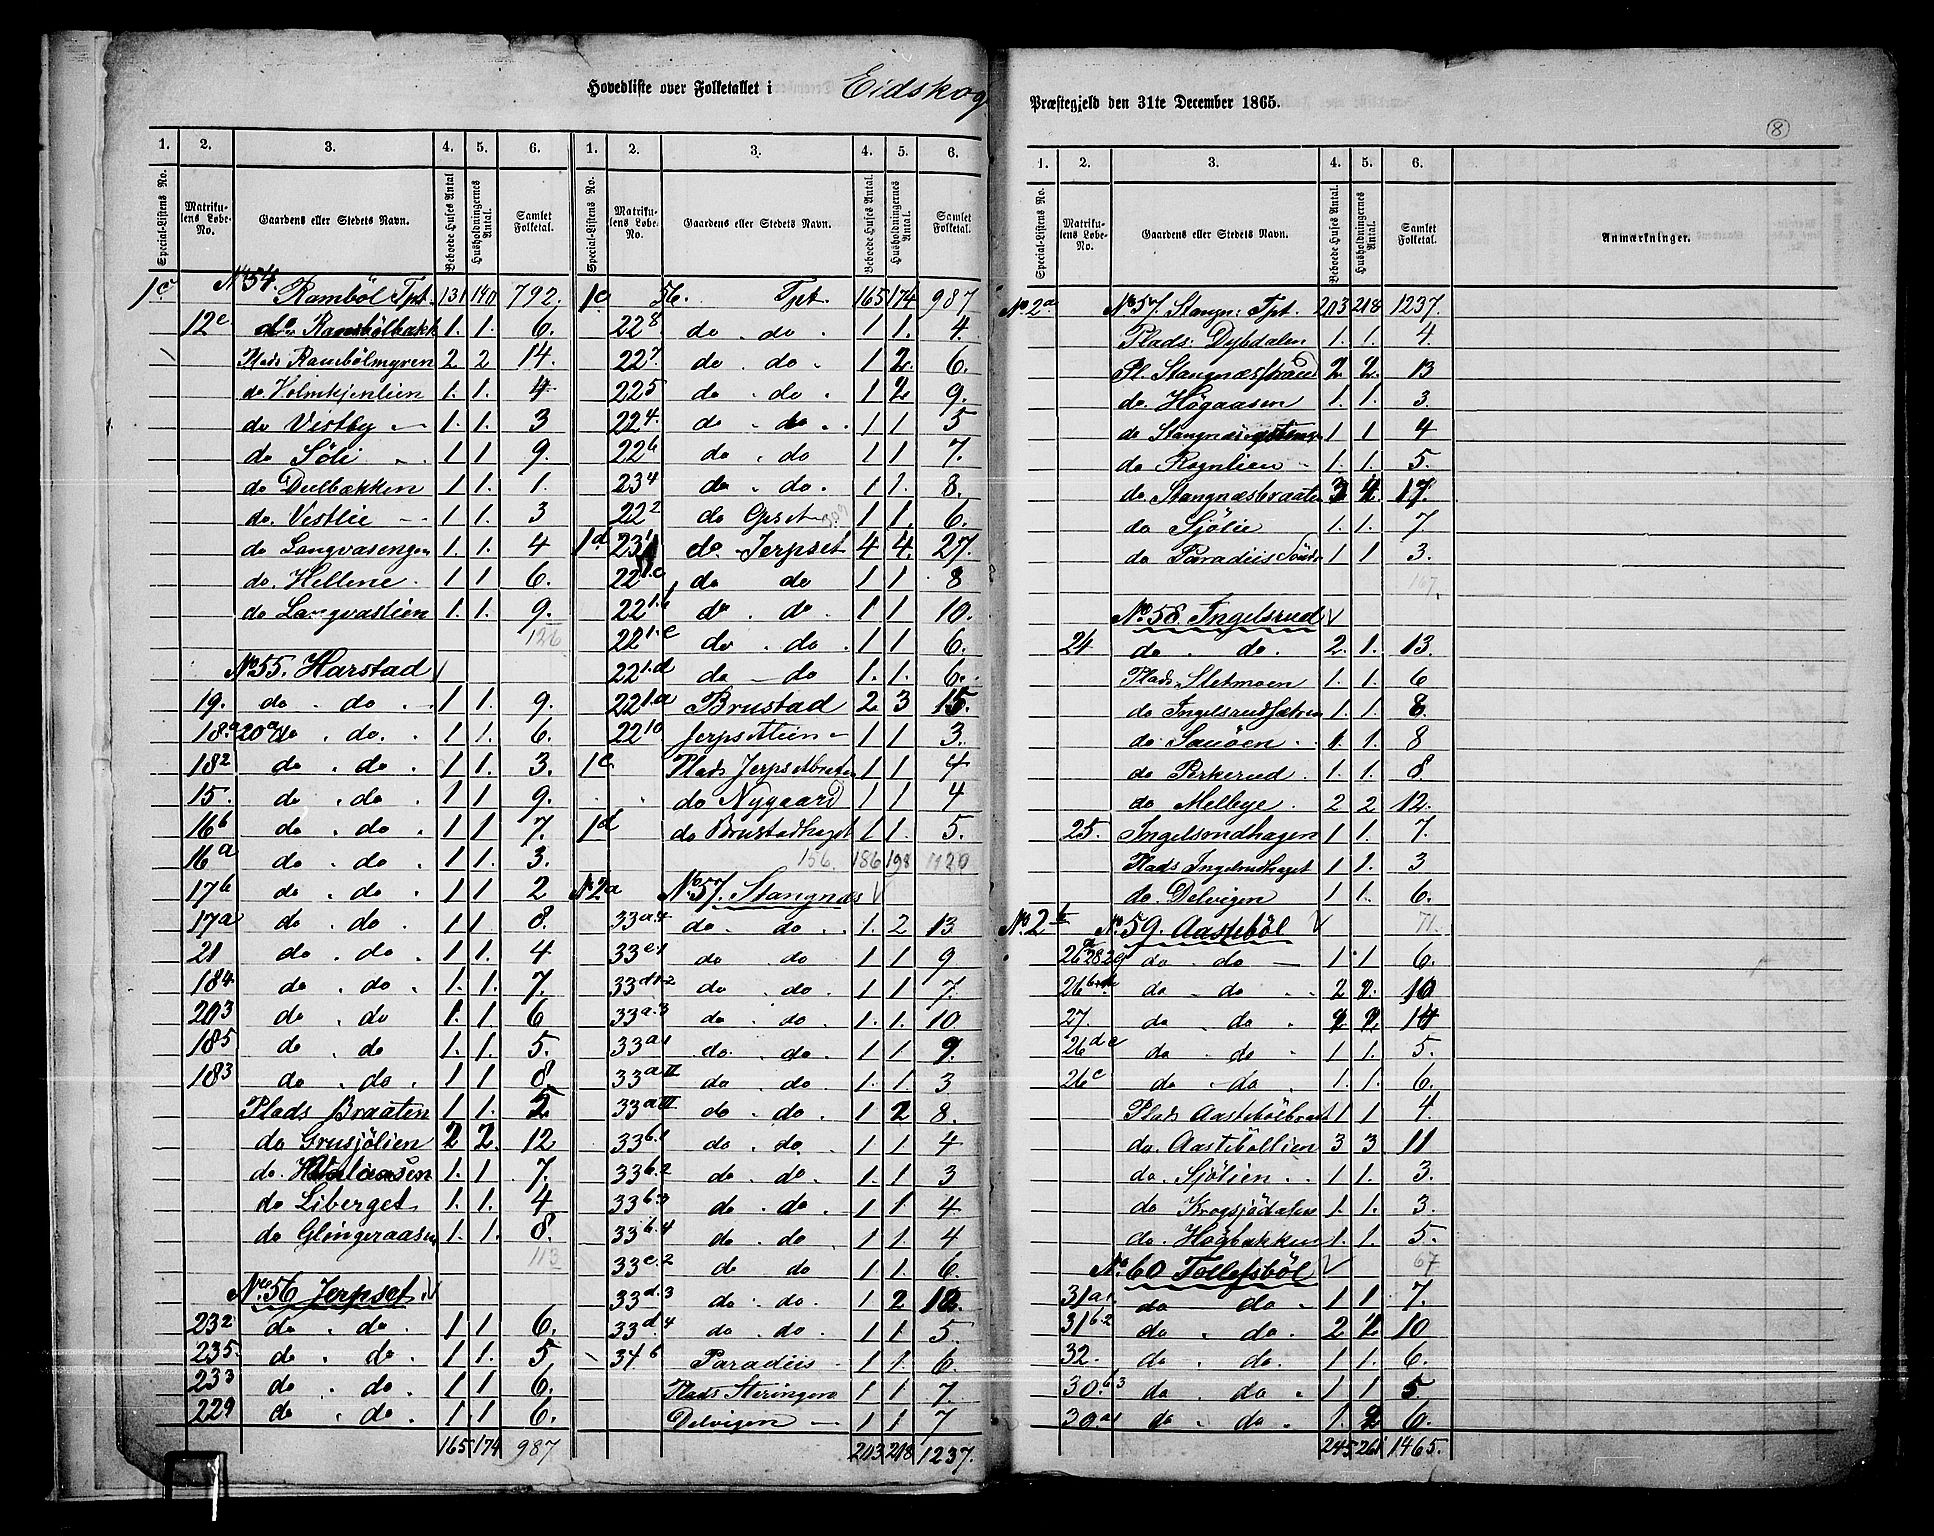 Hovedliste over Folketallet i Eidskog
Præstegjeld den 31te December 1865.
8
1. 2. 3. 4. 5. 6. 1. 2. 3. 4. 5. 6.
Special-Listens No. Matrikulens Løbe-No. Gaardens eller Stedets Navn. Beboede Huses Antal Husholdningernes Antal. Samlet Folketal. Special-Listens No. Matrikulens Løbe-No. Gaardens eller Stedets Navn. Beboede Huses Antal. Husholdningernes Antal. Samlet Folketal.
1c No 54. Ramböl Tpt. 131 140 792.
12c do Rambölbakk 1. 1. 6.
Plads Rambölmyren 2 2 14.
do Holmkjenlien 1. 1. 4
do Vestby 1. 1. 3
do Söli 1 1 9.
do Dulbækken 1 1. 1.
do. Vestlie 1 1. 3
do Langvasengen 1. 1. 4
do. Hellene 1 1 6.
do Langvastien 1. 1. 9.
126
No 55. Harstad
19. do . do. 1 1 9.
18.a 20a do. do. 1 1 6.
182 do . do. 1 1. 3.
15. do . do. 1 1 9.
16b do . do. 1 1 7.
16a do . do. 1 1 3.
17b do . do. 1 1 2
17a do . do. 1 1 8.
21 do . do. 1 1 4
184 do . do. 1. 1. 7.
203 do . do 1. 1. 6
185 do . do 1. 1. 5.
183 do . do. 1 1 8.
Plads Braaten 1 1. 5.
do Grusjölien 2 2. 12
do. 1. 1. 7.
do Liberget 1. 1. 4
do Glöngeraasen 1. 1. 8.
113
No 56 Jerpset
232 do . do. 1 1 6.
235. do . do. 1 1. 5
233 do . do. 1 1 6.
229 do . do. 1. 1 6.
165 174 987
1c 56. Tpt. 165 174 987
228 do do. 1 1. 4.
227. do . do. 1 2. 6.
225 do . do. 1 2. 9.
224. do . do. 1 1 5
226 do . do 1 1 7.
234 do . do. 1 1. 8.
222 do Opset 1 1. 6.
1d 231 do Jerpset 4 4. 27.
221.c do do 1 1 8
221.b do . do. 1. 1 10.
221.e do . do. 1 1 6.
221.d do do 1. 1. 6.
221.a Brustad 2. 3 15.
2210 Jerpsetlien 1 1 3.
1c Plads Jerpsetbraten 1 1 4
do Nygaard 1 1 4
1d do Brustadhaget 1 1. 5.
156. 186 198 1120
No 2a No 57. Stangnæs
33a.4 do. do. 1. 2 13
33c.1 do do 1 1 9
33d1-2 do . do. 1 1 7.
33a.3 do . do. 1. 1. 10.
33a1 do. do. 1 1 9.
33aII do . do. 1. 1. 3
33aIII do . do. 1 2 8.
33b.1 do . do. 1 1 4
33b.2 do . do. 1 1 3
33b.3 do . do. 1 1 4.
33b.4 do . do. 1 1 4
33c.2 do do 1 1. 6.
33d.3 do . do. 1 2 10.
33d.4 do . do. 1 1. 5.
34b Paradiis 1 1. 6.
Plads Steringen 1 1 7.
Delvigen 1 1 7
203 218 1237.
1. 2. 3. 4. 5. 6.
Special-Listens No. Matrikulens Løbe-No. Gaardens eller Stedets Navn. Beboede Huses Antal. Husholdningernes Antal. Samlet Folketal. Anmærkninger.
No 2a No 57. Stangn: Tpt. 203 218 1237.
Plads: Dybdalen 1. 1. 4.
Pl. Stangnæsstrand 2 2. 13
do. Högaasen 1. 1. 3.
do 1 1 4
do Rognlien 1. 1. 5.
do. Stangnæsbraaten 3 4. 17.
do Sjölie 1. 1. 7
do Paradiis Söndre 1 1 3.
167.
No 58. Ingelsrud
24 do . do. 2. 1. 13.
Plads Sletmoen 1. 1. 6
do Ingelsrudsætren 1. 1. 8.
do Sauöen 1. 1. 8
do Perkerud 1. 1. 8.
do Melbye. 2 2 12.
25. Ingelsrudhagen 1 1. 7.
Plads Ingelsrudhaget 1 1. 3
do. Delvigen 1 1. 6.
71.
No 2b No 59. Aasteböl
26a 28 29 do . do 1 1 6.
26b do . do 2 2. 10
27. do . do 2 2. 14
26d.e do . do 1 1. 5.
26c do . do. 1. 1. 6.
Plads Aastebölbraat 1 1 4.
do. Aasteböllien 3 3. 11
do. Sjölien 1 1. 3.
do Krogsjödalen 1. 1. 3.
do. Högbakken 1. 1. 5.
67
No. 60 Tollefsböl
31a1 do do 1 1 7.
31b.2 do . do. 2 2 10
32. do . do. 1 1. 6.
30.b3 do . do 1 1 5
30.a1 do . do 1. 2 6.
245 261 1465.